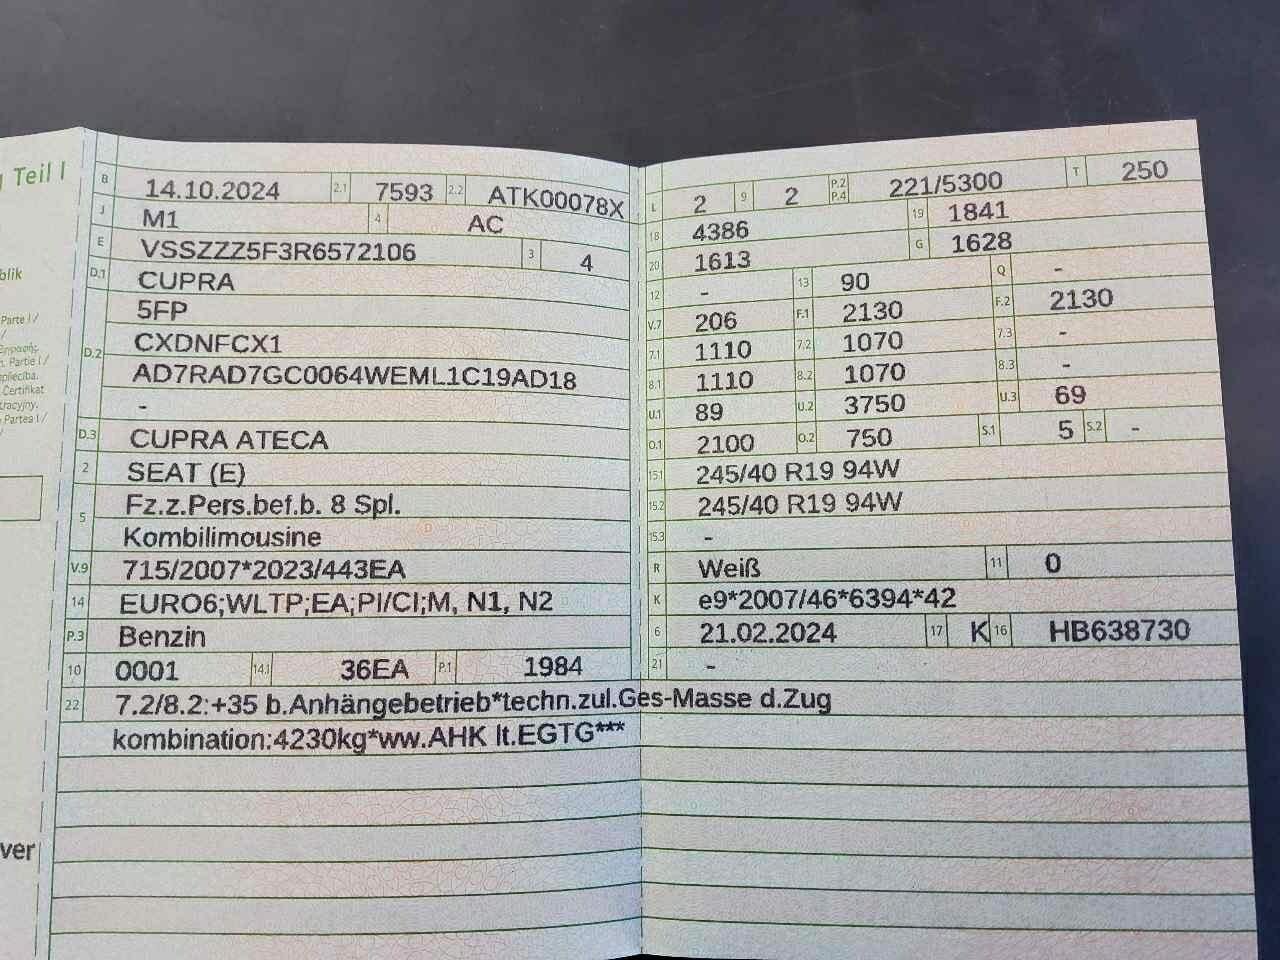 g Teil I
blik
Parte I /
Επιτροπής
n. Partie I /
plieciba.
Certifikat
tracyjny.
Partea I /
/
ver
B 14.10.2024 2.1 7593 2.2 ATK00078X
J M1 4 AC
E VSSZZZ5F3R6572106 3 4
D.1 CUPRA
D.2 5FP
CXDNFCX1
AD7RAD7GC0064WEML1C19AD18
-
D.3 CUPRA ATECA
2 SEAT (E)
5 Fz.z.Pers.bef.b. 8 Spl.
Kombilimousine
V.9 715/2007*2023/443EA
14 EURO6;WLTP;EA;PI/CI;M, N1, N2
P.3 Benzin
10 0001 14.1 36EA P.1 1984
L 2 9 2 P.2 P.4 221/5300 T 250
18 4386 19 1841
20 1613 G 1628
12 - 13 90 Q -
V.7 206 F.1 2130 F.2 2130
7.1 1110 7.2 1070 7.3 -
8.1 1110 8.2 1070 8.3 -
U.1 89 U.2 3750 U.3 69
O.1 2100 O.2 750 S.1 5 S.2 -
15.1 245/40 R19 94W
15.2 245/40 R19 94W
15.3 -
R Weiß 11 0
K e9*2007/46*6394*42
6 21.02.2024 17 K 16 HB638730
21 -
22 7.2/8.2:+35 b.Anhängebetrieb*techn.zul.Ges-Masse d.Zug
kombination:4230kg*ww.AHK lt.EGTG***